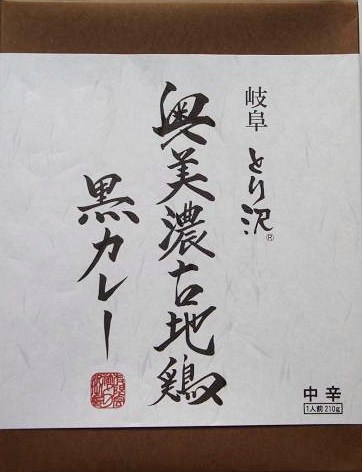 岐阜 とり沢®
奥美濃古地鶏
黒カレー
中辛
1人前 210g